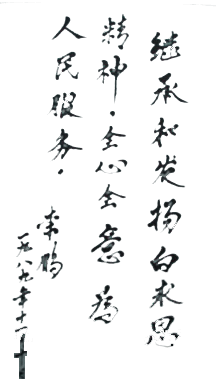 继承和发扬白求恩
精神。全心全意为
人民服务。
李鹏
一九八九年十一